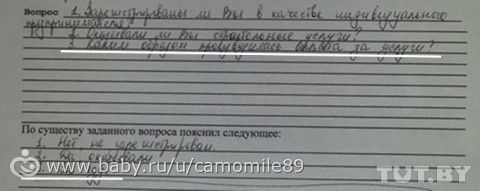 Вопрос 1. Зарегистрированы ли Вы в качестве индивидуального
предпринимателя?
2. Оказывали ли Вы строительные услуги?
3. Каким образом производилась оплата за услуги?
По существу заданного вопроса пояснил следующее:
1. Нет, не зарегистрирован.
2. Да оказывали
www.baby.ru/u/camomile89
TUT.BY